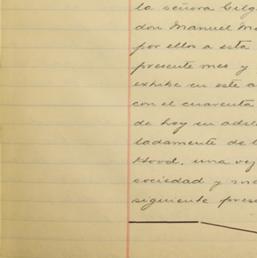 la señora Celg
don Manuel M
por ellos a esta
presente mes y
exhibe en este a
con el cuarenta
de hoy en adel
ladamente de l
Hood, una vez
sociedad y
siguiente pres